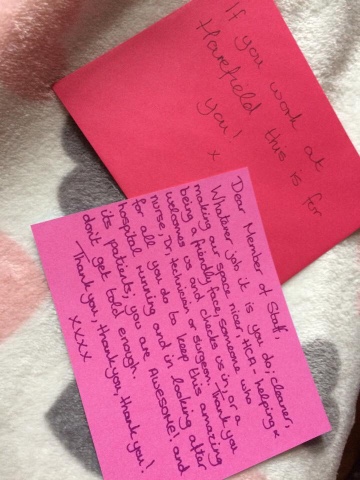 If you work at
Harefield this is for
you! x
Dear Member of Staff,
Whatever job it is you do; cleaner,
making our space nicer, HCA - helping &
being a friendly face, someone who
welcomes us and checks us in, or a
nurse, Dr, technician or surgeon. Thank you
for all you do to keep this amazing
hospital running and in looking after
its patients; you are Awesome! and
don't get told enough.
Thank you, thank you, thank you!
xxxx